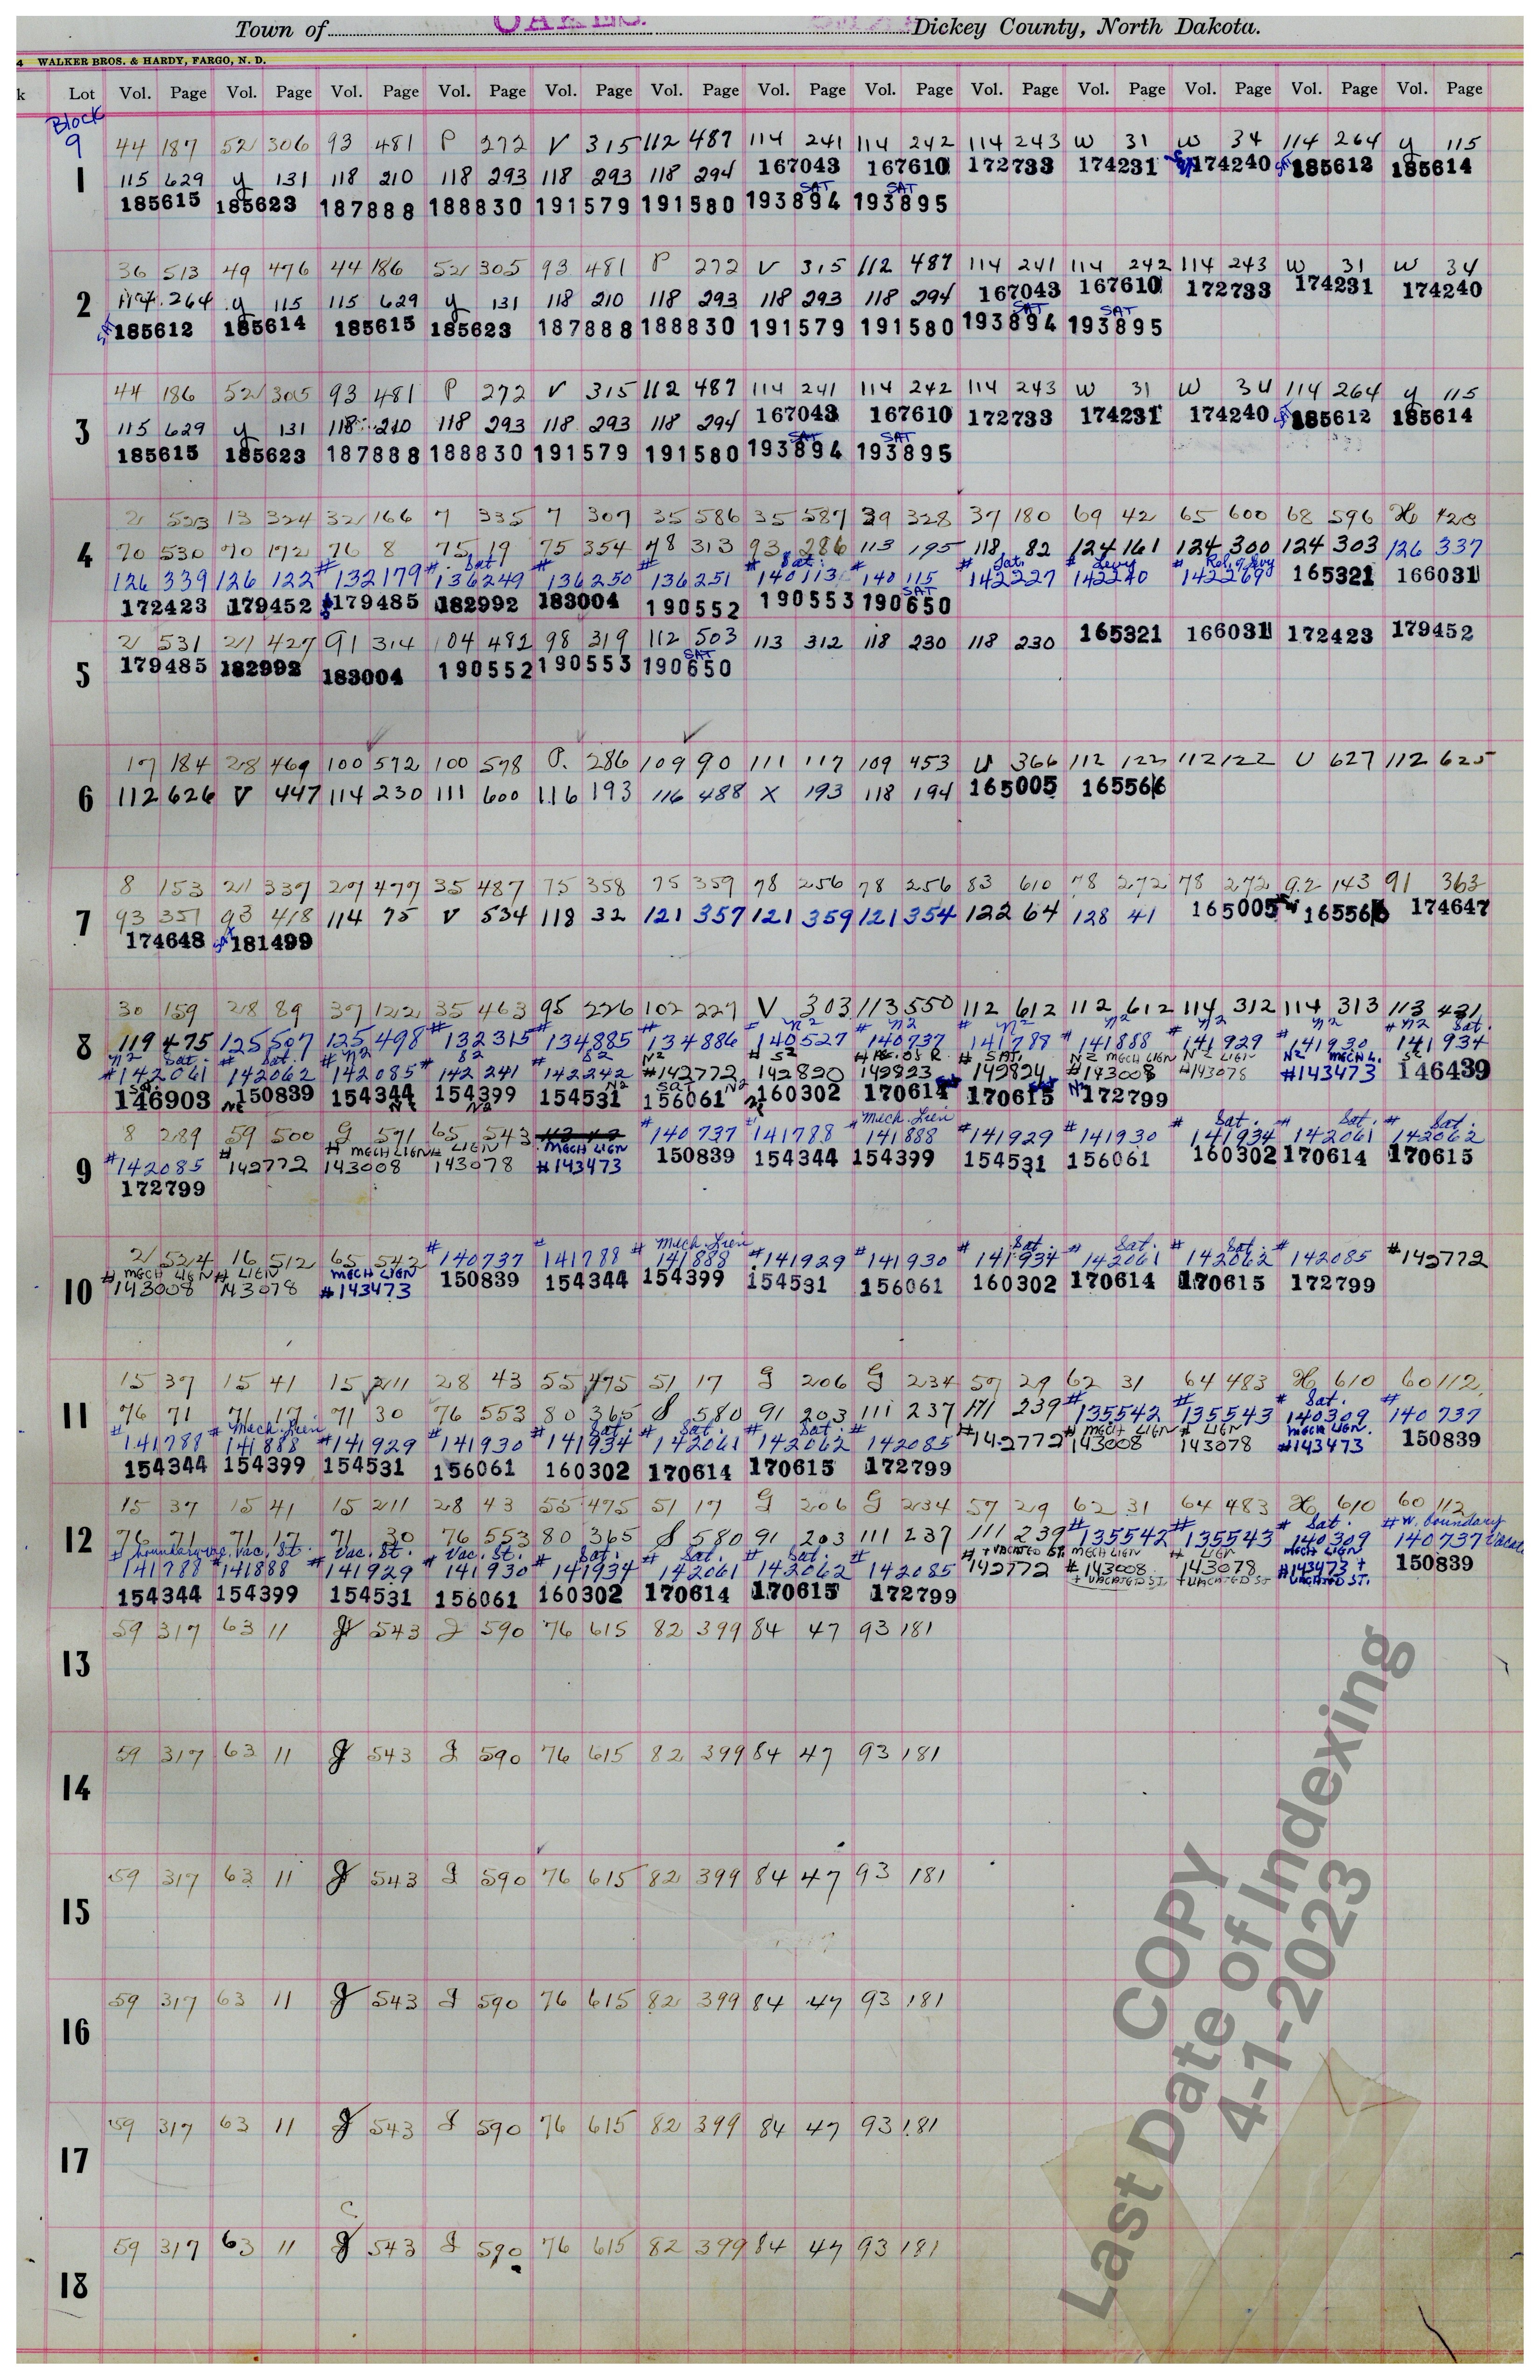 Town of OAKES. Dickey County, North Dakota.
4 WALKER BROS. & HARDY, FARGO, N. D.
k Lot Vol. Page Vol. Page Vol. Page Vol. Page Vol. Page Vol. Page Vol. Page Vol. Page Vol. Page Vol. Page Vol. Page Vol. Page Vol. Page
Block
9 44 187 52 306 93 481 P 272 V 315 112 487 114 241 114 242 114 243 W 31 W 34 114 264 y 115
1 115 629 y 131 118 210 118 293 118 293 118 294 167043 167610 172733 174231 174240 SAT 185612 185614
185615 185623 187888 188830 191579 191580 193894 SAT 193895 SAT
36 513 49 476 44 186 52 305 93 481 P 272 V 315 112 487 114 241 114 242 114 243 W 31 W 34
2 114 264 y 115 115 629 y 131 118 210 118 293 118 293 118 294 167043 167610 172733 174231 174240
SAT 185612 185614 185615 185623 187888 188830 191579 191580 193894 SAT 193895 SAT
44 186 52 305 93 481 P 272 V 315 112 487 114 241 114 242 114 243 W 31 W 34 114 264 y 115
3 115 629 y 131 118 210 118 293 118 293 118 294 167043 167610 172733 174231 174240 SAT 185612 185614
185615 185623 187888 188830 191579 191580 193894 SAT 193895 SAT
2 533 13 324 32 166 7 335 7 307 35 586 35 587 39 328 37 180 69 42 65 600 68 596 H 428
4 70 530 70 172 76 8 75 19 75 354 78 313 93 286 113 195 118 82 124 161 124 300 124 303 126 337
126 339 126 122 #132179 # Sat 136249 # 136250 # 136251 # Sat. 140113 # 140 115 # Sat. 142227 # Levy 142240 # Rel. of Levy 142269 165321 166031
172423 179452 179485 182992 183004 190552 190553 190650 SAT
21 531 21 427 91 314 104 482 98 319 112 503 113 312 118 230 118 230 165321 166031 172423 179452
5 179485 182992 183004 190552 190553 190650 SAT
17 184 28 469 100 572 100 578 P. 286 109 90 111 117 109 453 U 366 112 122 112 122 U 627 112 625
6 112 626 V 447 114 230 111 600 116 193 116 488 X 193 118 194 165005 165566
8 153 21 337 27 477 35 487 75 358 75 359 78 256 78 256 83 610 78 272 78 272 92 143 91 363
7 93 351 93 418 114 75 V 534 118 32 121 357 121 359 121 354 122 64 128 41 165005 165566 174647
174648 SAT 181499
30 159 28 89 37 122 35 463 95 226 102 227 V 303 113 550 112 612 112 612 114 312 114 313 113 431
8 119 475 125 507 125 498 #132315 #134885 #134886 # N2 140527 # N2 140737 # N2 141788 # N2 141888 # N2 141929 # N2 141930 # N2 Sat. 141934
N2 Sat. #142061 # Sat. 142062 # N2 142085 # S2 142241 # S2 142242 N2 #142772 # S2 142820 142823 # SAT. 142824 N2 MECH LIEN #143008 N2 LIEN #143078 N2 MECH L. #143473 146439
146903 150839 154344 154399 154531 156061 160302 170614 170615 N2 172799
8 289 59 500 G 571 65 543 #140737 #141788 # Mech. Lien 141888 #141929 #141930 # Sat. 141934 # Sat. 142061 # Sat. 142062
9 #142085 #142772 # MECH LIEN 143008 # LIEN 143078 MECH LIEN #143473 150839 154344 154399 154531 156061 160302 170614 170615
172799
21 524 16 512 65 543 #140737 141788 # Mech. Lien 141888 #141929 #141930 # Sat. 141934 # Sat. 142061 # Sat. 142062 # 142085 #142772
10 # MECH LIEN 143008 # LIEN 143078 MECH LIEN #143473 150839 154344 154399 154531 156061 160302 170614 170615 172799
15 37 15 41 15 211 28 43 55 475 51 17 G 206 G 234 57 29 62 31 64 483 H 610 60 112
11 76 71 71 17 71 30 76 553 80 365 S 580 91 203 111 237 111 239 #135542 #135543 # Sat. 140309 # 140737
# 141788 # Mech. Lien 141888 #141929 #141930 # Sat. 141934 # Sat. 142061 # Sat. 142062 # 142085 #142772 # MECH LIEN 143008 # LIEN 143078 MECH LIEN. #143473 150839
154344 154399 154531 156061 160302 170614 170615 172799
15 37 15 41 15 211 28 43 55 475 51 17 G 206 G 234 57 29 62 31 64 483 H 610 60 112
12 76 71 71 17 71 30 76 553 80 365 S 580 91 203 111 237 111 239 #135542 #135543 # Sat. 140309 # W. boundary 140737 vacate
# 141788 Vac. St. #141888 # Vac. St. 141929 # Vac. St. 141930 # Sat. 141934 # Sat. 142061 # Sat. 142062 # 142085 # + VACATED ST. 142772 MECH LIEN #143008 + VACATED ST. # LIEN 143078 + VACATED ST MECH LIEN #143473 + VACATED ST. 150839
154344 154399 154531 156061 160302 170614 170615 172799
59 317 63 11 g 543 J 590 76 615 82 399 84 47 93 181
13
59 317 63 11 g 543 J 590 76 615 82 399 84 47 93 181
14
59 317 63 11 g 543 J 590 76 615 82 399 84 47 93 181
15
59 317 63 11 g 543 J 590 76 615 82 399 84 47 93 181
16
59 317 63 11 g 543 J 590 76 615 82 399 84 47 93 181
17
59 317 63 11 g 543 J 590 76 615 82 399 84 47 93 181
18
COPY
Last Date of Indexing
4-1-2023